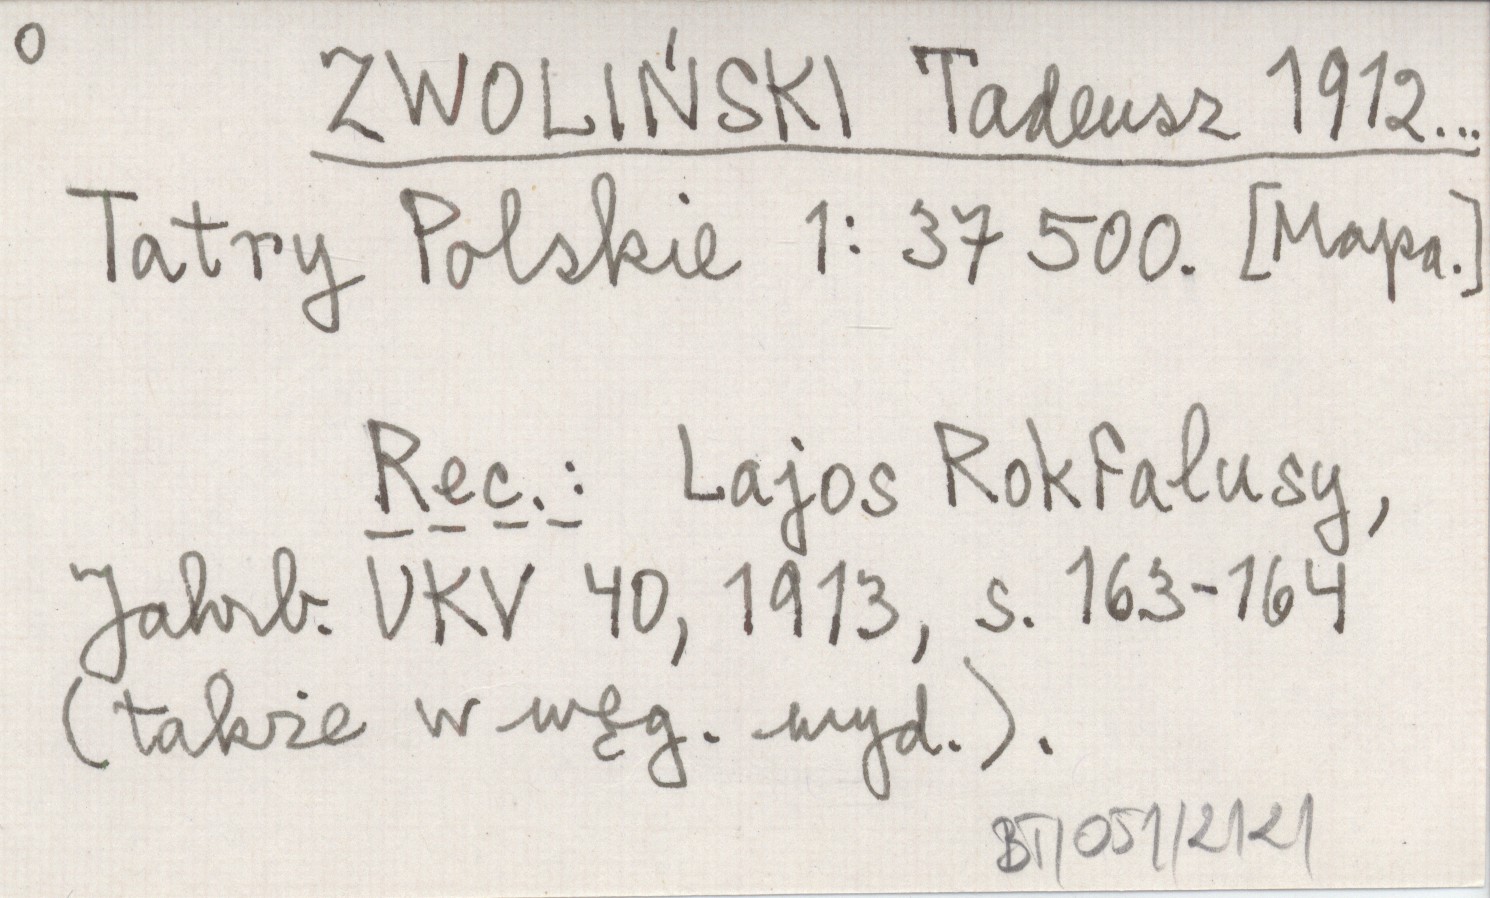 o
ZWOLIŃSKI Tadeusz 1912...
Tatry Polskie 1:37 500. [Mapa.]
Rec.: Lajos Rokfalusy,
Jahrb. UKV 40, 1913, s. 163-164
(także w węg. wyd.).
BT/051/2121